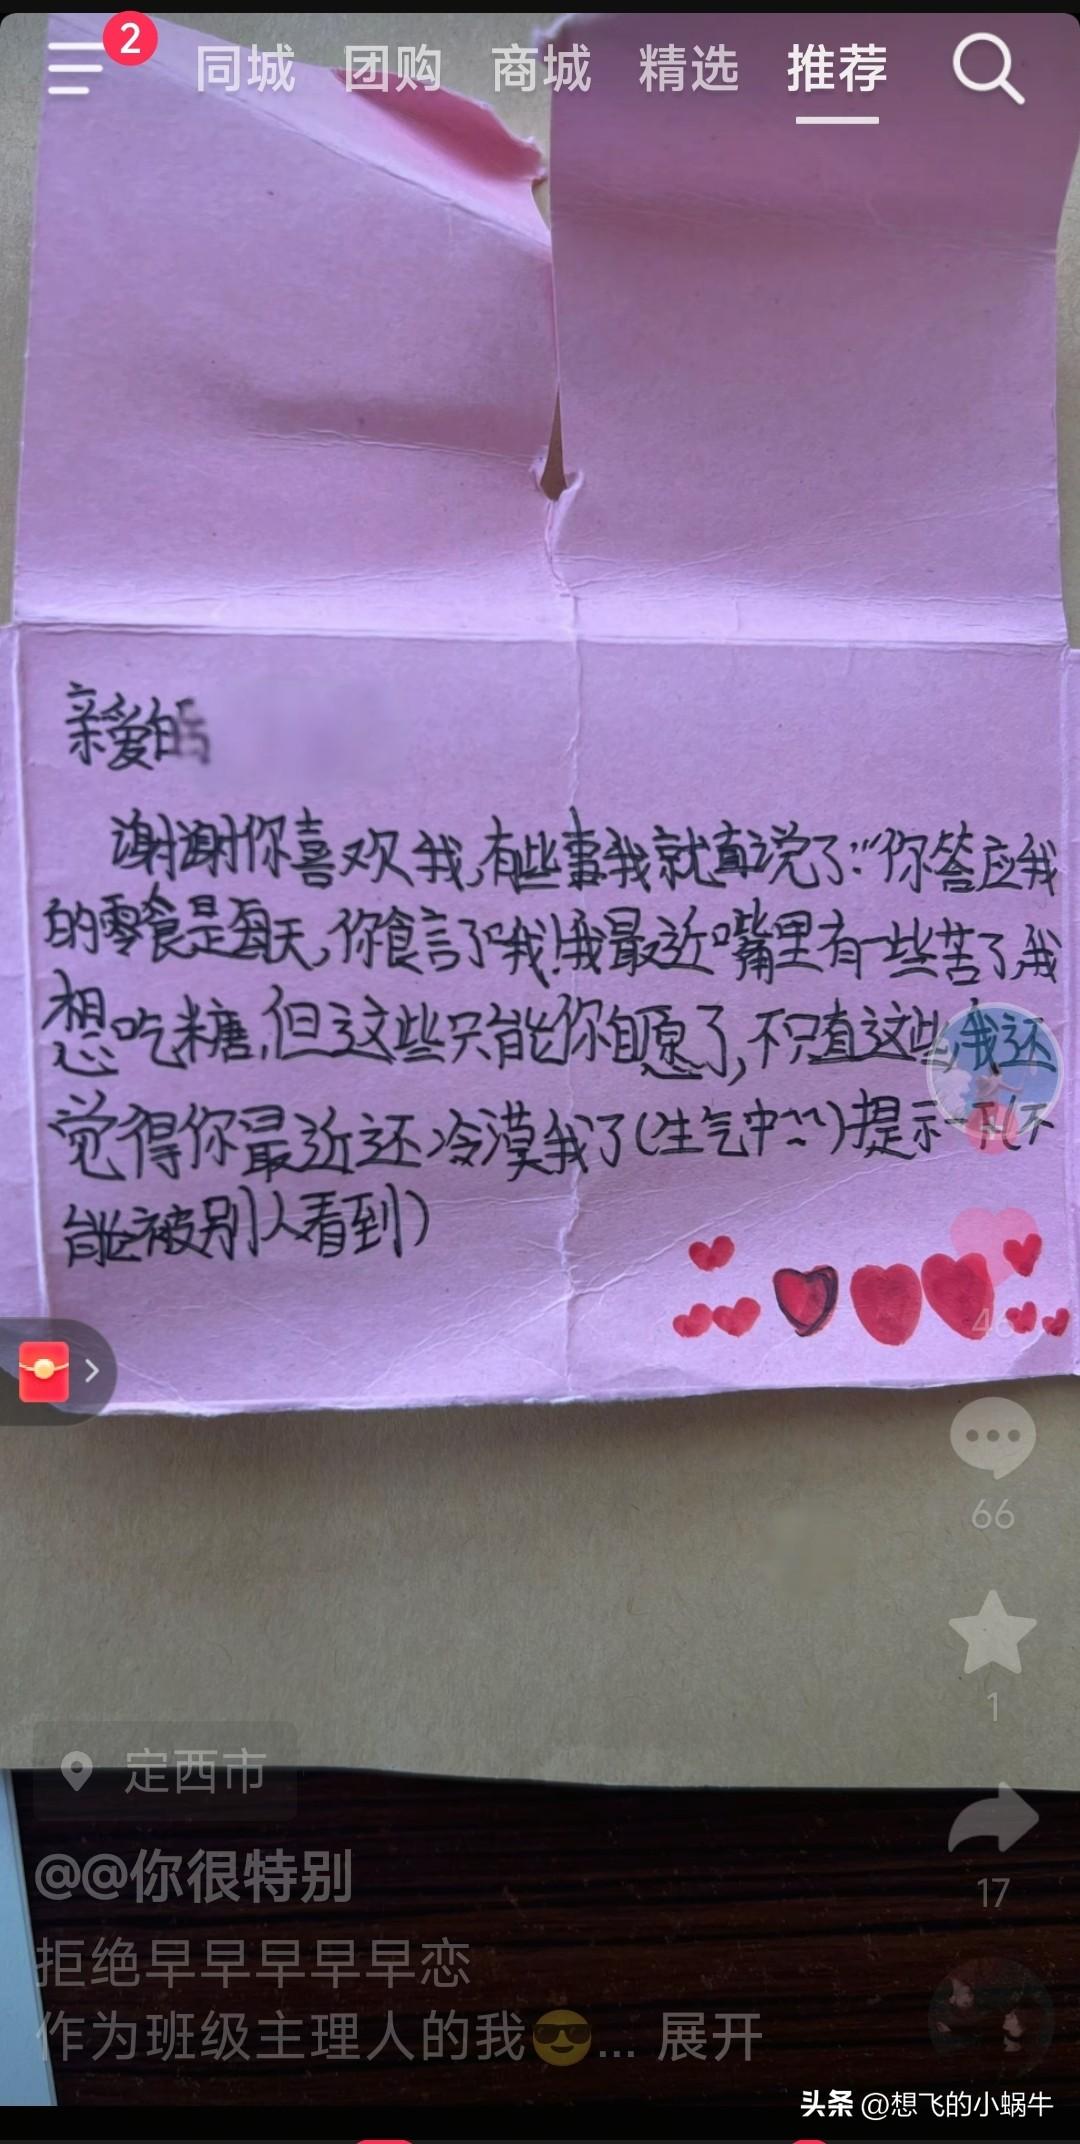 2
同城 团购 商城 精选 推荐
亲爱的
谢谢你喜欢我,有些事我就真说了:“你答应我
的零食是每天,你食言了哦!我最近嘴里有一些苦了,我
想吃糖,但这些只能你自愿了,不只直这些,我还
觉得你最近还冷漠我了(生气中~~)提示一下(不
能被别人看到)
46
66
1
定西市
17
@@你很特别
拒绝早早早早早恋
作为班级主理人的我😎... 展开
头条 @想飞的小蜗牛